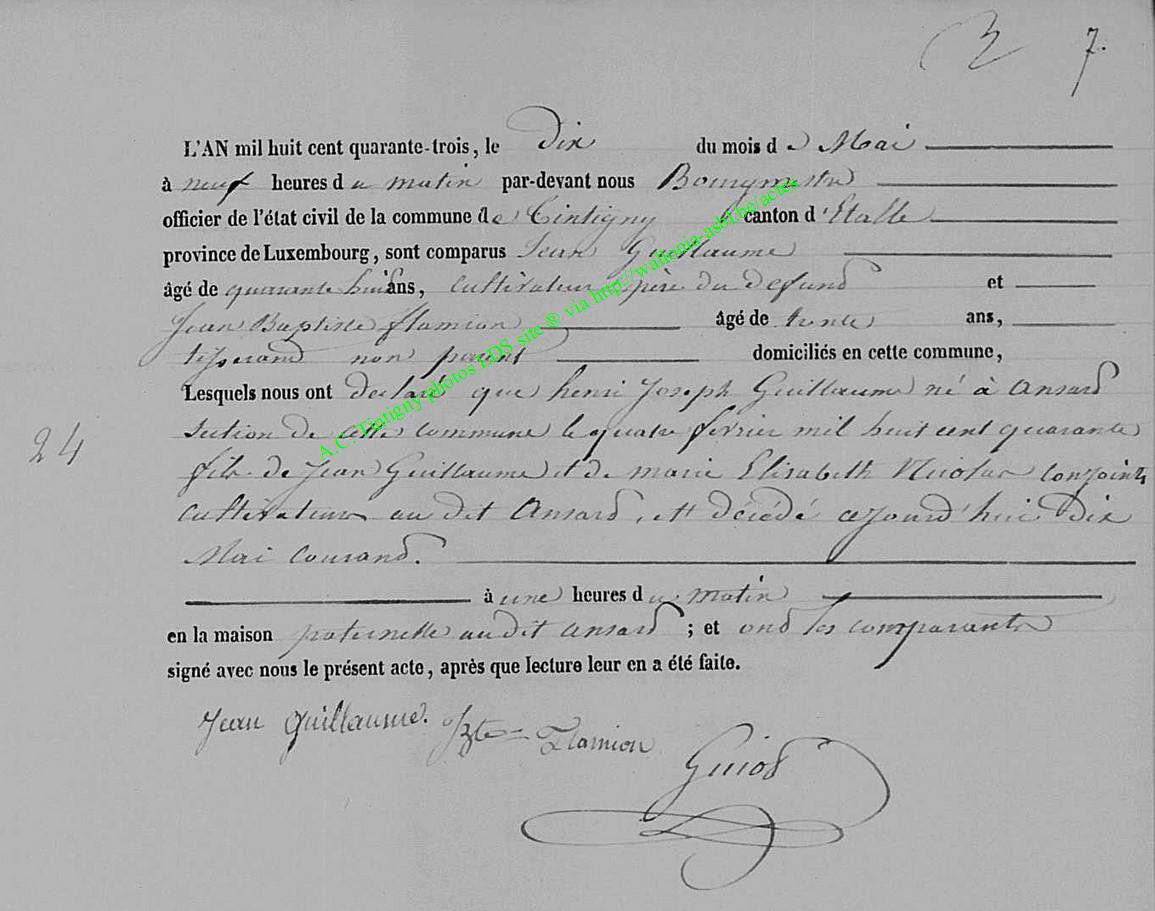 7.
L'AN mil huit cent quarante-trois, le Dix du mois de Mai
à neuf heures du matin par-devant nous Bourgmestre
officier de l'état civil de la commune de Tintigny canton d'Etalle
province de Luxembourg, sont comparus Jean Guillaume
âgé de quarante huit ans, cultivateur père du defund et
Jean Baptiste flamion âgé de trente ans,
tisserand non parent domiciliés en cette commune,
Lesquels nous ont declaré que henri Joseph Guillaume né à ansard
section de cette commune le quatre fevrier mil huit cent quarante
24
fils de Jean Guillaume et de marie Elisabeth Nicolas conjoints
cultivateurs au dit Ansard, est décédé cejourd'hui Dix
Mai courand.
à une heures du matin
en la maison paternelle au dit ansard ; et ond les comparants
signé avec nous le présent acte, après que lecture leur en a été faite.
Jean Guillaume. Jbte Flamion
Guiod
A.C. Tintigny photos EDS site ® via http://wallonia-asbl.be/actes